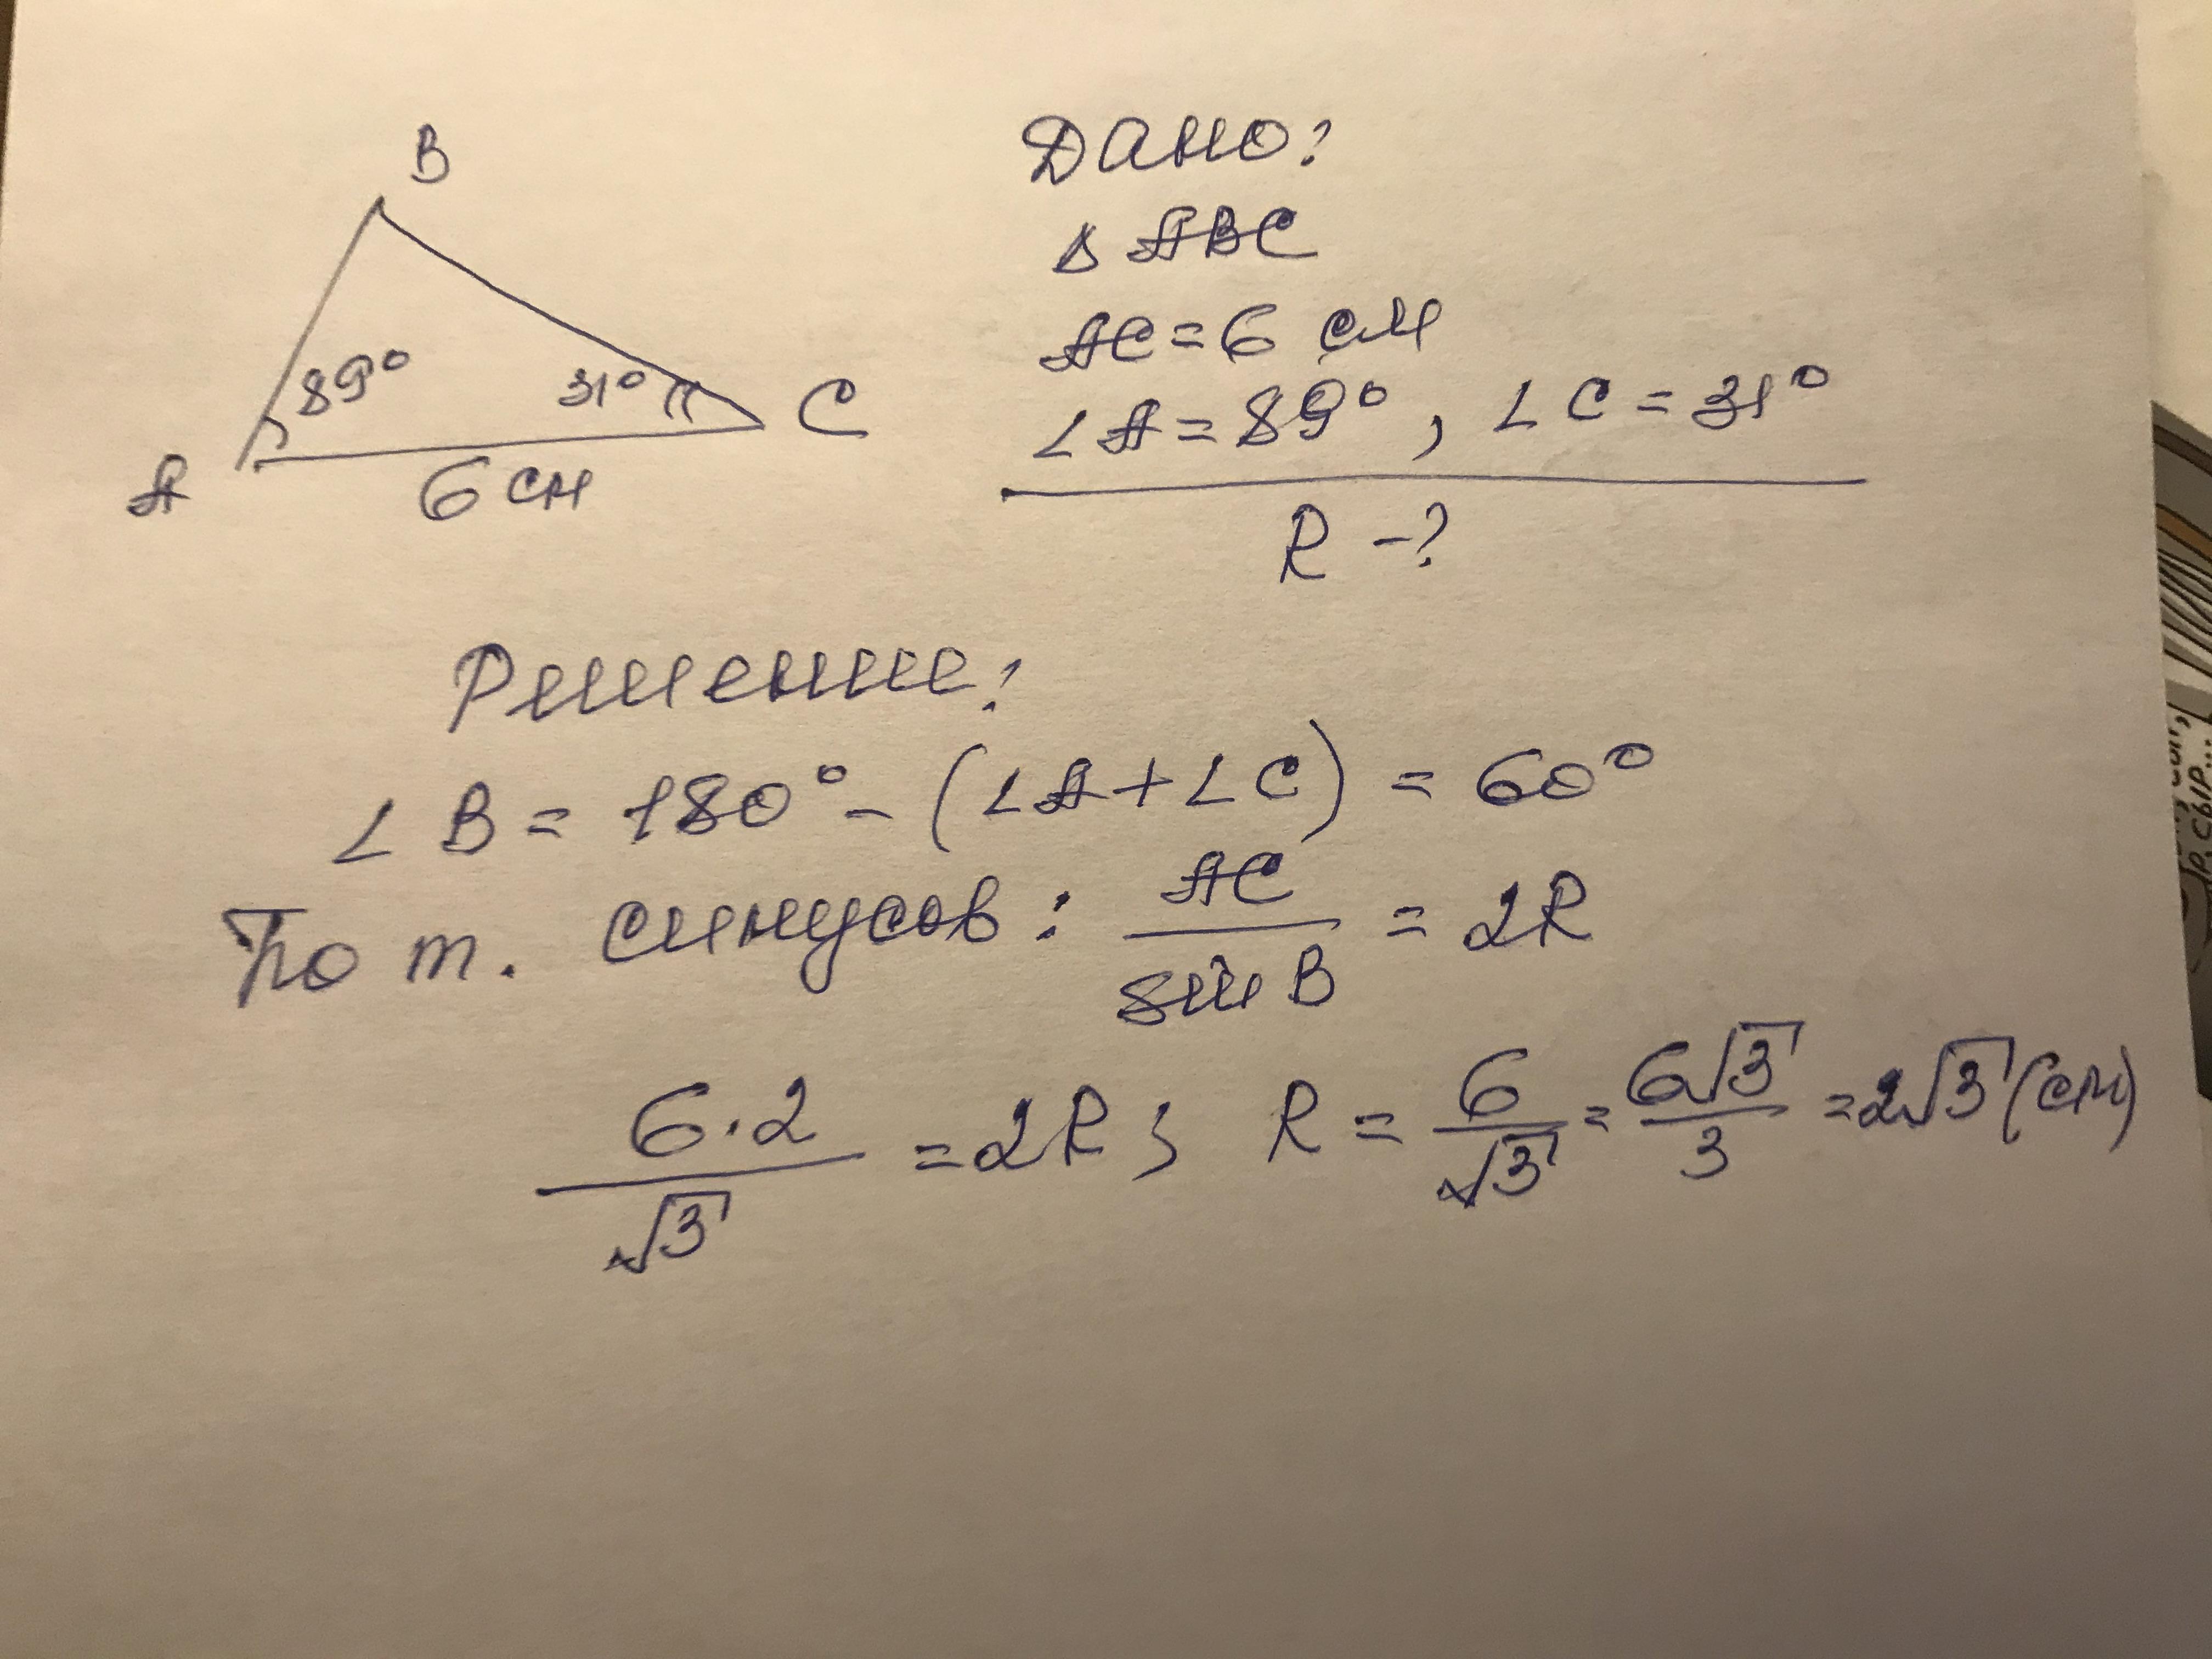 B
89°
31°
C
A
6 см
Дано:
Δ ABC
AC = 6 см
∠A = 89°, ∠C = 31°
R - ?
Решение:
∠B = 180° - (∠A + ∠C) = 60°
По т. синусов: AC/sin B = 2R
6·2/√3 = 2R; R = 6/√3 = 6√3/3 = 2√3 (см)
сыр...